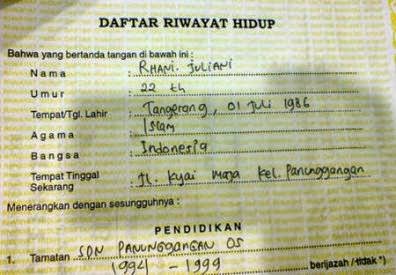 DAFTAR RIWAYAT HIDUP
Bahwa yang bertanda tangan di bawah ini :
Nama : RHANI. JULIANI
Umur : 22 th
Tempat/Tgl. Lahir : Tangerang, 01 Juli 1986
Agama : Islam
Bangsa : Indonesia
Tempat Tinggal
Sekarang : Jl. Kyai Maja Kel. Panunggangan
Menerangkan dengan sesungguhnya :
PENDIDIKAN
1. Tamatan SDN PANUNGGANGAN 05
1994 - 1999 berijazah / tidak *)